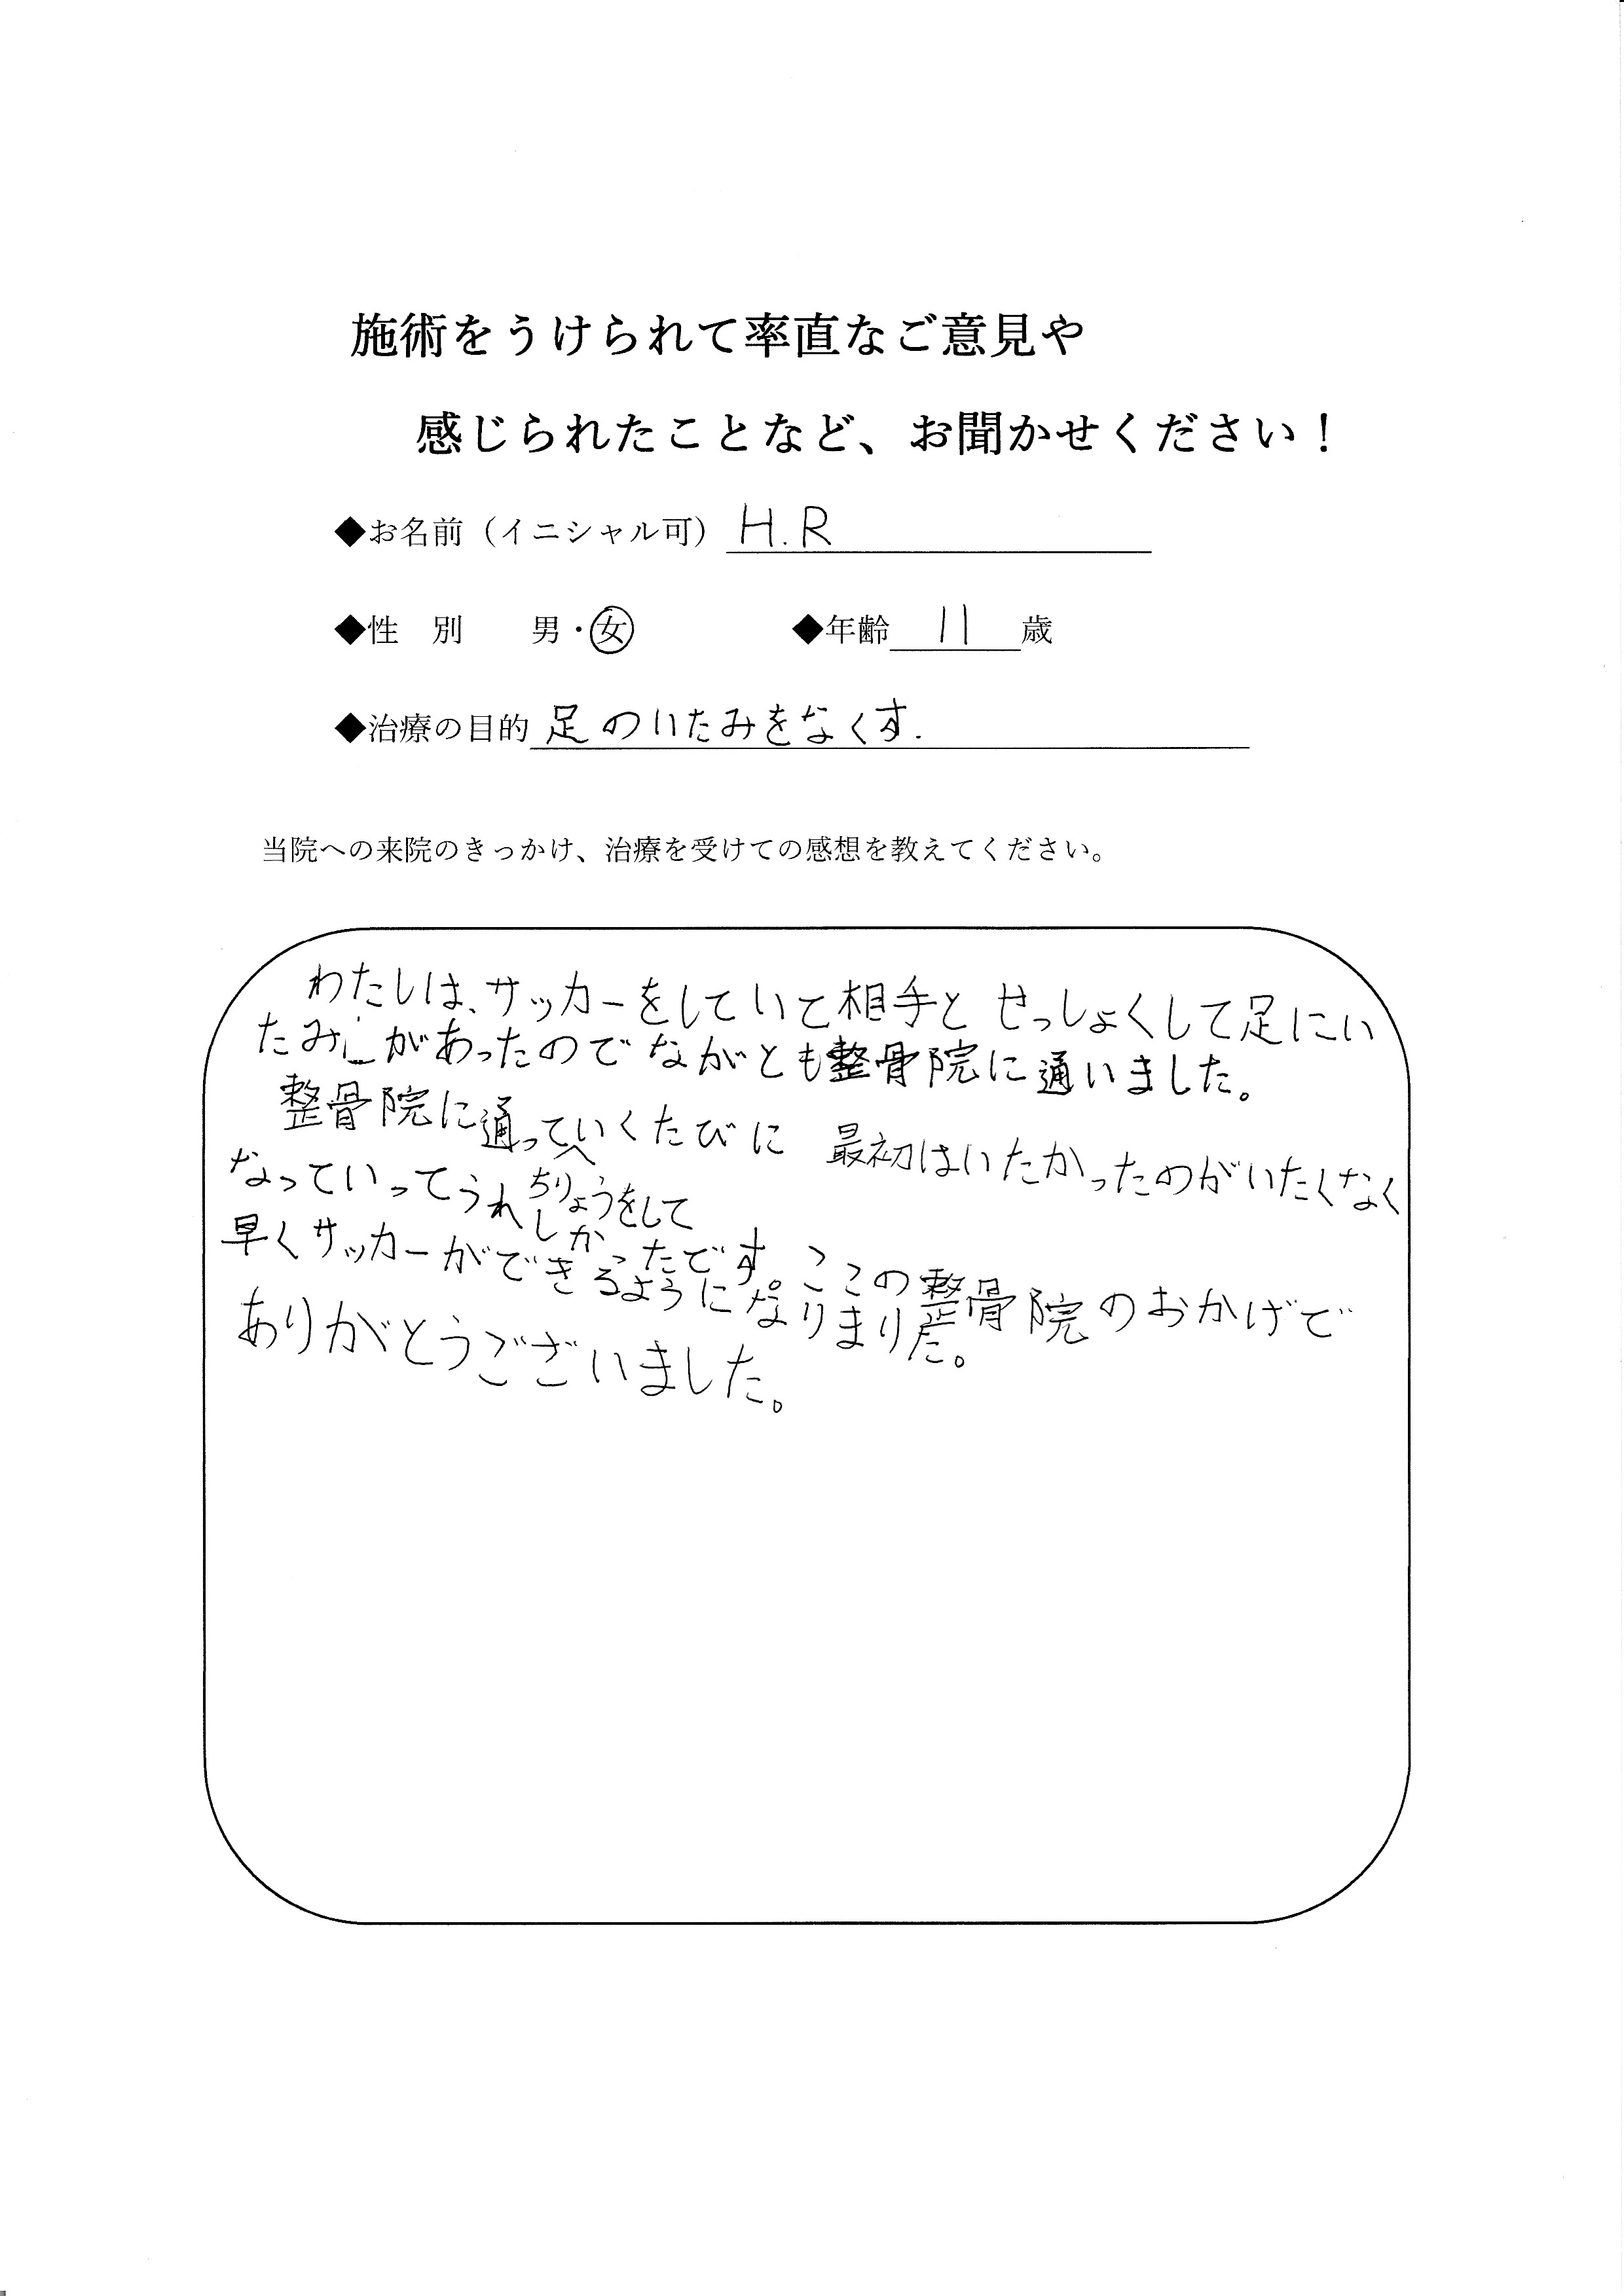 施術をうけられて率直なご意見や
感じられたことなど、お聞かせください！
◆お名前（イニシャル可） H.R
◆性　別　　男・女　　◆年齢 11 歳
◆治療の目的 足のいたみをなくす.
当院への来院のきっかけ、治療を受けての感想を教えてください。
わたしは、サッカーをしていて相手と せっしょくして足にい
たみがあったのでながとも整骨院に通いました。
整骨院に通っていくたびに 最初はいたかったのがいたくなく
ちりょうをして
なっていってうれしかったです。ここの整骨院のおかげで
早くサッカーができるようになりました。
ありがとうございました。